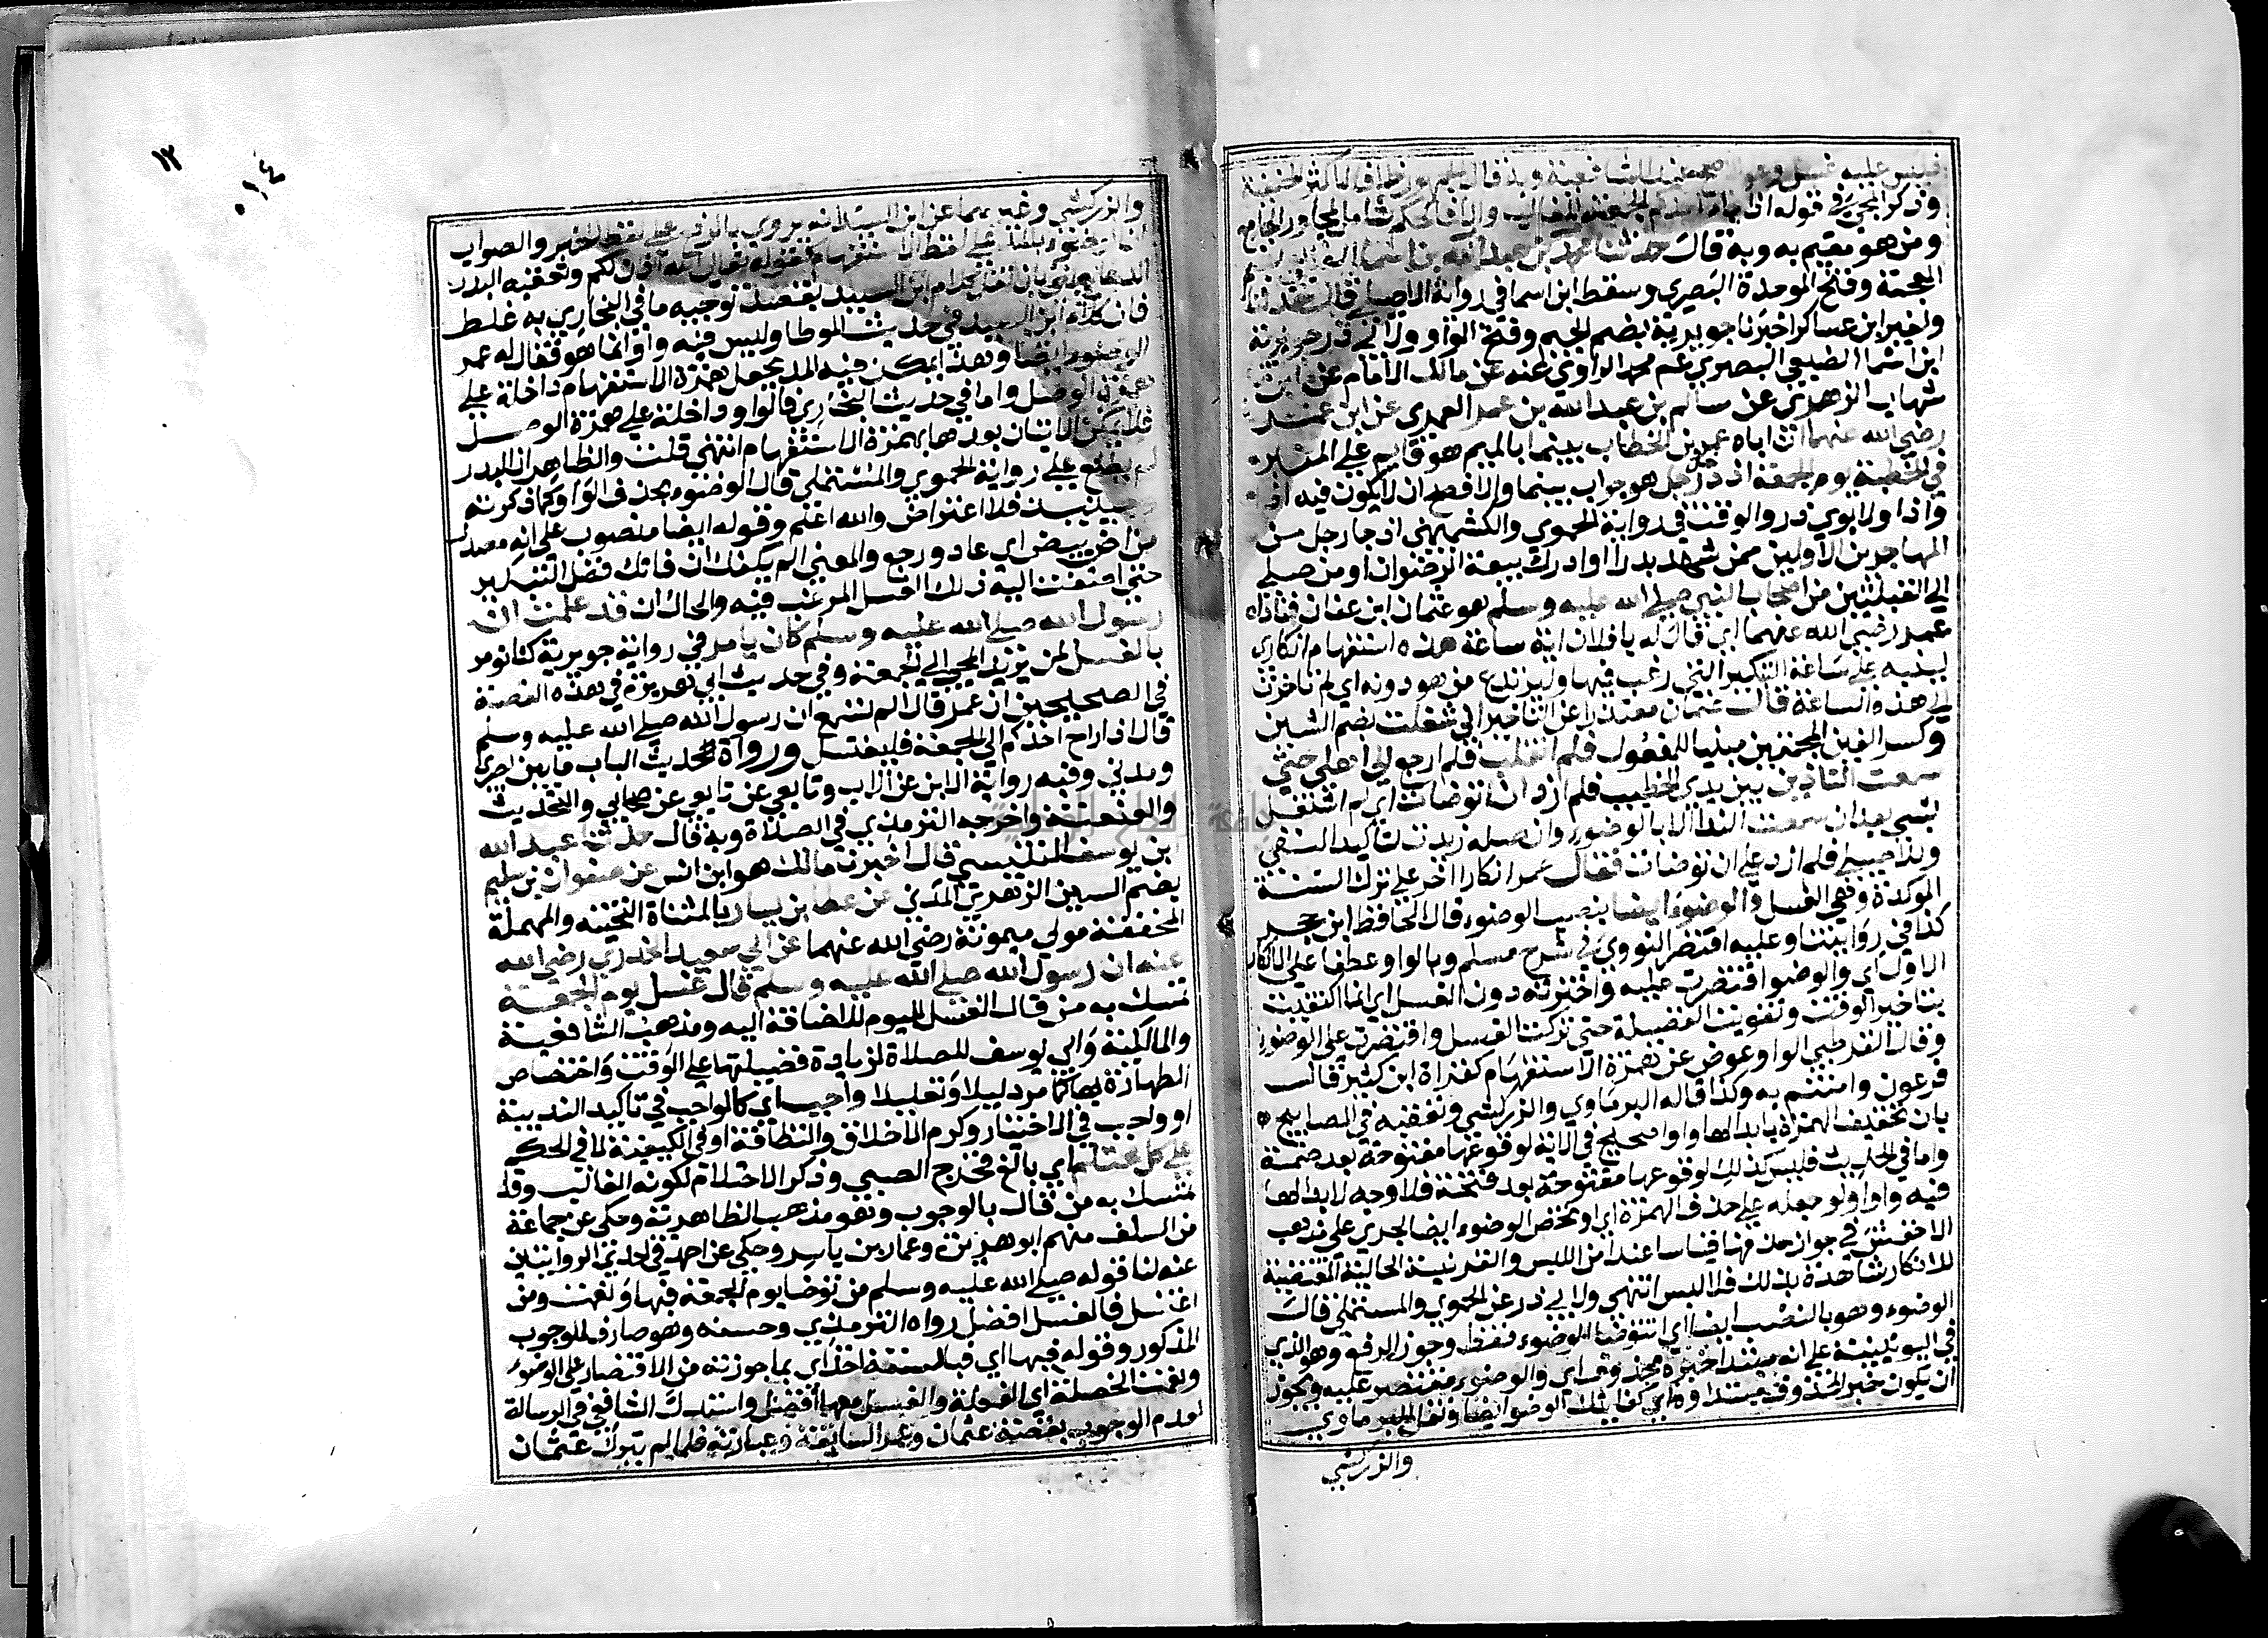 فليس عليه غسل وهو الاصح عند الشافعية وبه قال الجمهور خلافا لاكثر الحنفية
وذكر المجي في قوله اذا جاء احدكم الجمعة للغالب والا فالحكم شامل لمجاور الجامع
ومن هو مقيم به وبه قال حدثنا عبد الله بن محمد بن اسما
المعجمة وفتح الموحدة البصري وسقط ابن اسما في رواية الاصيلي قال حدثنا
ولغير ابن عساكر اخبرنا جويرية بضم الجيم وفتح الواو ولابي ذر جويرية
ابن اسما الضبعي البصري عم محمد الراوي عنه عن مالك الامام عن ابن
شهاب الزهري عن سالم بن عبد الله بن عمر العمري عن ابن عمر
رضي الله عنهما ان اباه عمر بن الخطاب بينما بالميم هو قايم علي المنبر
في الخطبة يوم الجمعة اذ دخل رجل هو جواب بينما والافصح ان لا يكون فيه اذ
واذا ولابوي ذر والوقت في رواية الحموي والكشميهني اذ جا رجل من
المهاجرين الاولين ممن شهد بدرا او ادرك بيعة الرضوان او من صلي
الي القبلتين من اصحاب النبي صلي الله عليه وسلم هو عثمان ابن عفان فناداه
عمر رضي الله عنهما اي قال له يا فلان اية ساعة هذه استفهام انكاري
لينبه علي ساعة التبكير التي رغب فيها وليرتدع من هو دونه اي لم تاخرت
الي هذه الساعة قال عثمان معتذرا عن التاخير اني شغلت بضم الشين
وكسر الغين المعجمتين مبنيا للمفعول فلم انقلب فلم ارجع الي اهلي حتي
سمعت التاذين بين يدي الخطيب فلم ازد ان توضات اي لم اشتغل
بشي بعد ان سمعت الندا الا بالوضوء وان صلة زيدت لتاكيد النفي
وللاصيلي فلم ازد علي ان توضات فقال عمر انكارا اخر علي ترك السنة
الموكدة وهي الغسل والوضوء ايضا بنصب الوضوء قال الحافظ ابن حجر
كذا في روايتنا وعليه اقتصر النووي في شرح مسلم وبالواو عطفا علي الانكار
الاول اي والوضو اقتصرت عليه واخترته دون الغسل اي اما اكتفيت
بتاخير الوقت وتفويت الفضيلة حتي تركت الغسل واقتصرت علي الوضوء
وقال القرطبي الواو عوض عن همزة الاستفهام كقراة ابن كثير قال
فرعون وامنتم به وكذا قاله البرماوي والزركشي وتعقبه في المصابيح
بان تخفيف الهمزة بابدالها واوا صحيح في الاية لوقوعها مفتوحة بعد ضمة
واما في الحديث فليس كذلك لوقوعها مفتوحة بعد فتحة فلا وجه لابدالها
فيه واوا ولو جعله علي حذف الهمزة اي او تخص الوضوء ايضا لجري علي مذهب
الاخفش في جواز حذفها قياسا عند امن اللبس والقرينة الحالية المقتضية
للانكار شاهدة بذلك فلا لبس انتهي ولابي ذر عن الحموي والمستملي قال
الوضوء وهو بالنصب ايضا اي اتتوضا الوضوء فقط وجوز الرفع وهو الذي
في اليونينية علي انه مبتدا خبره محذوف اي والوضوء مقتصر عليه ويجوز
ان يكون خبر المحذوف مبتداوه اي كفايتك الوضو ايضا ونقل البرماوي
والزركشي
١٢
٠١٤
والزركشي وغيرهما عن ابن السيد انه يروي بالرفع علي لفظ الخبر والصواب
ان الوضوء بالمد علي لفظ الاستفهام كقوله تعالي آلله اذن لكم وتعقبه البدر
الدماميني بان نقل كلام ابن السيد بقصد توجيه ما في البخاري به غلط
فان كلام ابن السيد في حديث الموطا وليس فيه واو انما هو فقال له عمر
الوضوء ايضا وهذا يمكن فيه المد بجعل همزة الاستفهام داخلة علي
همزة الوصل واما في حديث البخاري فالواو داخلة علي همزة الوصل
فلا يمكن الاتيان بعدها بهمزة الاستفهام انتهي قلت والظاهر ان البدر
لم يطلع علي رواية الحموي والمستملي قال الوضوء بحذف الواو كما ذكرته
وحينيذ فلا اعتراض والله اعلم وقوله ايضا منصوب علي انه مصدر
من اض يييض اي عاد ورجع والمعني الم يكفك ان فاتك فضل التبكير
حتي اضفت اليه ترك الغسل المرغب فيه والحال ان قد علمت ان
رسول الله صلي الله عليه وسلم كان يامر في رواية جويرية كنا نومر
بالغسل لمن يريد المجي الي الجمعة وفي حديث ابي هريرة في هذه القصة
في الصحيحين ان عمر قال الم تسمع ان رسول الله صلي الله عليه وسلم
قال اذا راح احدكم الي الجمعة فليغتسل ورواة الحديث الباب ما بين بصري
ومدني وفيه رواية الابن عن الاب وتابعي عن تابعي عن صحابي والتحديث
والعنعنة واخرجه الترمذي في الصلاة وبه قال حدثنا عبد الله
ابن يوسف التنيسي قال اخبرنا مالك هو ابن انس عن صفوان بن سليم
بضم السين الزهري المدني عن عطا بن يسار بالمثناة التحتية والمهملة
المخففة مولي ميمونة رضي الله عنهما عن ابي سعيد الخدري رضي الله
عنه ان رسول الله صلي الله عليه وسلم قال غسل يوم الجمعة
تمسك به من قال الغسل لليوم للاضافة اليه ومذهب الشافعية
والمالكية وابي يوسف للصلاة لزيادة فضيلتها علي الوقت واختصاص
الطهارة بها كما مر دليلا وتعليلا واجب اي كالواجب في تاكيد الندبية
او واجب في الاختيار وكرم الاخلاق والنظافة او في الكيفية لا في الحكم
علي كل محتلم اي بالغ فخرج الصبي وذكر الاحتلام لكونه الغالب وقد
تمسك به من قال بالوجوب وهو مذهب الظاهرية وحكي عن جماعة
من السلف منهم ابو هريرة وعمار بن ياسر وحكي عن احمد في احدي الروايتين
عنه لنا قوله صلي الله عليه وسلم من توضا يوم الجمعة فبها ونعمت ومن
اغتسل فالغسل افضل رواه الترمذي وحسنه وهو صارف للوجوب
المذكور وقوله فبها اي فبالسنة اخذ اي بما جوزته من الاقتصار علي الوضوء
ونعمت الخصلة اي الفعلة والغسل معها افضل واستدل الشافعي في الرسالة
لعدم الوجوب بقصة عثمان وعمر السابقة وعبارته فلما لم يترك عثمان